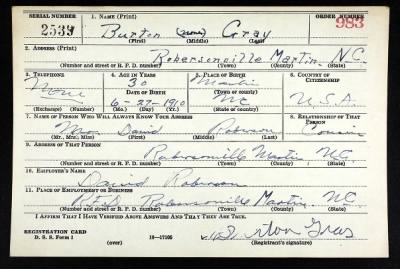 SERIAL NUMBER 1. NAME (Print) ORDER NUMBER
2539 Burton (none) Gray 983
(First) (Middle) (Last)
2. ADDRESS (Print)
Robersonville Martin N.C.
(Number and street or R. F. D. number) (Town) (County) (State)
3. TELEPHONE 4. AGE IN YEARS 5. PLACE OF BIRTH 6. COUNTRY OF CITIZENSHIP
None 30 Martin
DATE OF BIRTH (Town or county)
6-27-1910 NC U.S.A.
(Exchange) (Number) (Mo.) (Day) (Yr.) (State or country)
7. NAME OF PERSON WHO WILL ALWAYS KNOW YOUR ADDRESS 8. RELATIONSHIP OF THAT PERSON
Mrs. David Roberson Cousin
(Mr., Mrs., Miss) (First) (Middle) (Last)
9. ADDRESS OF THAT PERSON
Robersonville Martin N.C.
(Number and street or R. F. D. number) (Town) (County) (State)
10. EMPLOYER'S NAME
David Roberson
11. PLACE OF EMPLOYMENT OR BUSINESS
R.F.D. Robersonville Martin. N.C.
(Number and street or R. F. D. number) (Town) (County) (State)
I AFFIRM THAT I HAVE VERIFIED ABOVE ANSWERS AND THAT THEY ARE TRUE.
REGISTRATION CARD
D. S. S. Form 1 (over) 16-17105 (Registrant's signature)